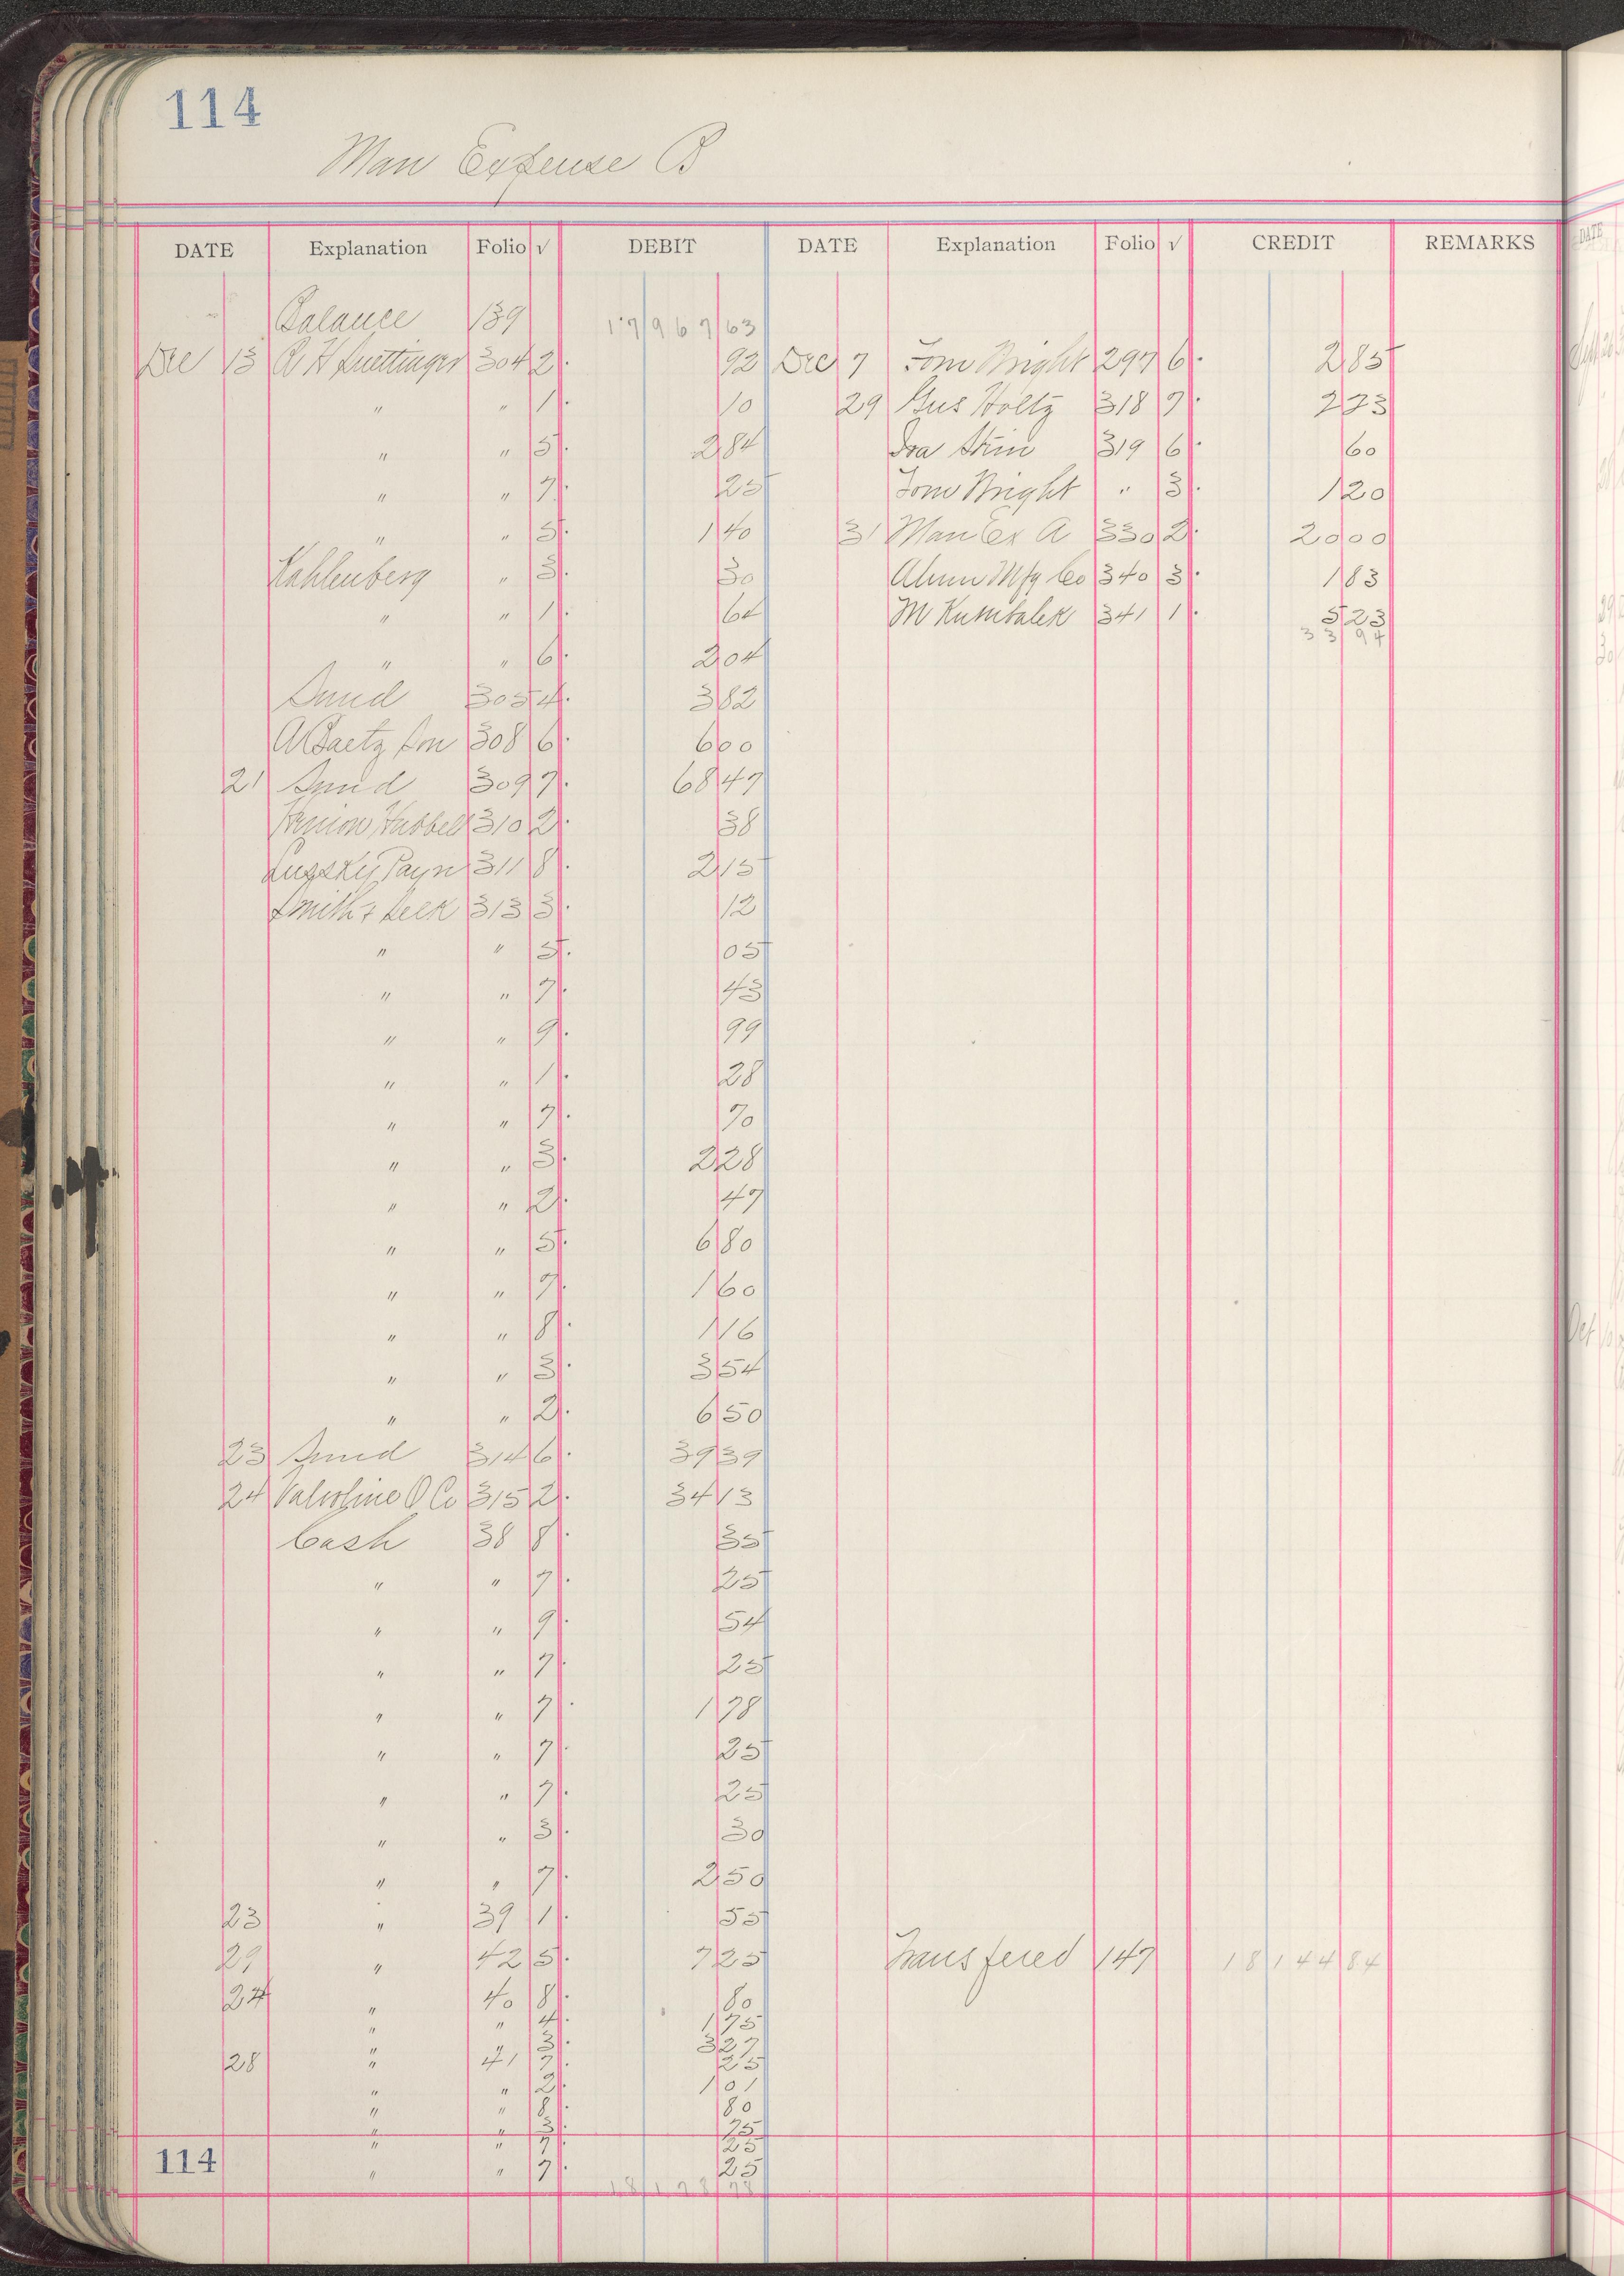 114
Man Expense B
DATE Explanation Folio √ DEBIT DATE Explanation Folio √ CREDIT REMARKS
Balance 139 17967 63
Dec 13 R. H 304 2 92 Dec 7 Tom Wright 297 6 2 85
" " 1 10 29 Gus Holtz 318 7 2 23
" " 5 2 84 Ira 319 6 60
" " 7 25 Tom Wright " 3 1 20
" " 5 1 40 31 Man Ex A 330 2 20 00
Kahlenberg " 3 30 Alum Mfg Co 340 3 1 83
" " 1 64 M Kumbalek 341 1 5 23
" " 6 2 04 33 94
Sund 305 4 3 82
A Baetz Son 308 6 6 00
21 Sund 309 7 68 47
Hubbell 310 2 38
Payn 311 8 2 15
Smith & 313 3 12
" " 5 05
" " 7 43
" " 9 99
" " 1 28
" " 7 70
" " 3 2 28
" " 2 47
" " 5 6 80
" " 7 1 60
" " 8 1 16
" " 3 3 54
" " 2 6 50
23 Sund 314 6 39 39
24 Valvoline O Co 315 2 34 13
Cash 38 8 35
" " 7 25
" " 9 54
" " 7 25
" " 7 1 78
" " 7 25
" " 7 25
" " 3 30
" " 7 2 50
23 " 39 1 55
29 " 42 5 7 25 Transfered 147 18144 84
24 " 40 8 80
" " 4 1 75
" 3 3 27
28 " 41 7 25
" " 2 1 01
" " 8 80
" " 3 75
" " 7 25
114 " " 7 25
18178 78